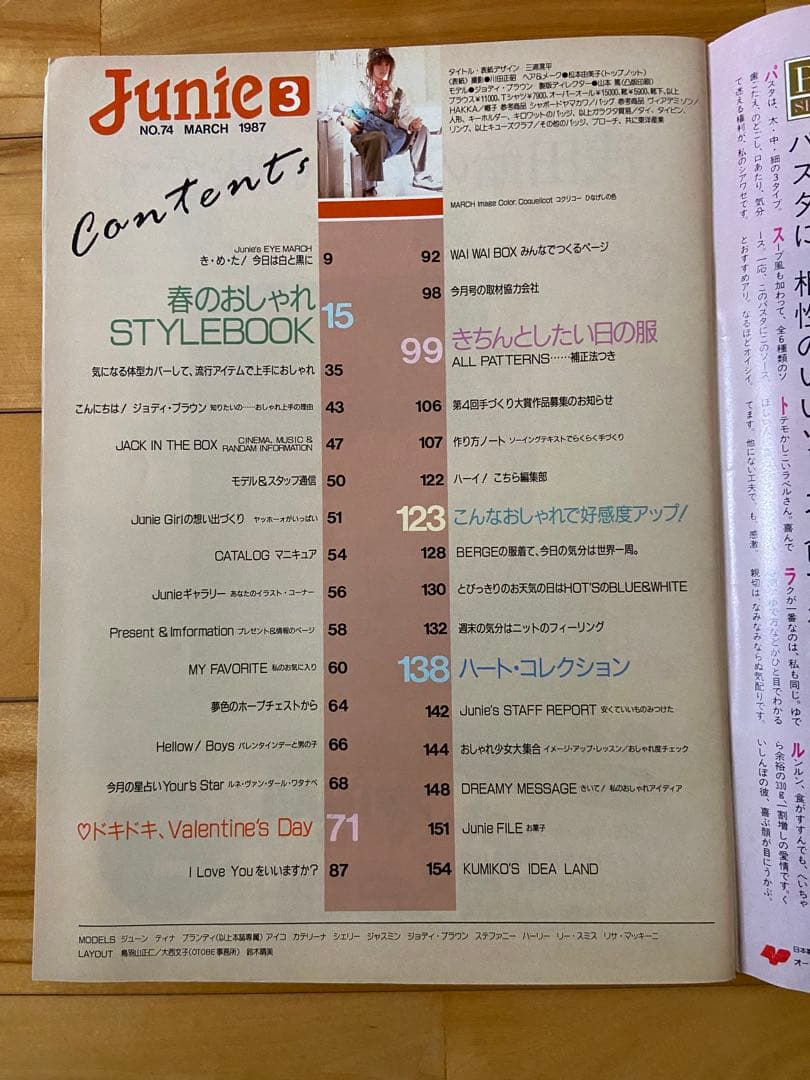 Junie 3
NO.74 MARCH 1987
Contents
タイトル・表紙デザイン 三浦滉平
〈表紙〉撮影●川田正昭 ヘア&メーク●松本由美子(トップノット)
モデル●ジョディ・ブラウン 製版ディレクター●山本 篤(凸版印刷)
ブラウス¥11000、Tシャツ¥7900、オーバーオール¥15000、靴¥5900、靴下、以上
HAKKA/帽子 参考商品 シャポードヤマカワ/バッグ 参考商品 ヴィアデミゾン/
人形、キーホルダー、キロワットのバッジ、以上ガラクタ貿易/タイ、タイピン、
リング、以上キューズクラブ/その他のバッジ、ブローチ、共に東洋産業
MARCH Image Color. Coquelicot コクリコー ひなげしの色
Junie's EYE MARCH
き・め・た! 今日は白と黒に 9
春のおしゃれ
STYLEBOOK 15
気になる体型カバーして、流行アイテムで上手におしゃれ 35
こんにちは! ジョディ・ブラウン 知りたいの……おしゃれ上手の理由 43
JACK IN THE BOX CINEMA, MUSIC & RANDAM INFORMATION 47
モデル&スタッフ通信 50
Junie Girlの想い出づくり ヤッホーォがいっぱい 51
CATALOG マニキュア 54
Junieギャラリー あなたのイラスト・コーナー 56
Present & Imformation プレゼント&情報のページ 58
MY FAVORITE 私のお気に入り 60
夢色のホープチェストから 64
Hellow! Boys バレンタインデーと男の子 66
今月の星占いYour's Star ルネ・ヴァン・ダール・ワタナベ 68
♡ドキドキ、Valentine's Day 71
I Love Youをいいますか? 87
92 WAI WAI BOX みんなでつくるページ
98 今月号の取材協力会社
99 きちんとしたい日の服
ALL PATTERNS……補正法つき
106 第4回手づくり大賞作品募集のお知らせ
107 作り方ノート ソーイングテキストでらくらく手づくり
122 ハーイ! こちら編集部
123 こんなおしゃれで好感度アップ!
128 BERGEの服着て、今日の気分は世界一周。
130 とびっきりのお天気の日はHOT'SのBLUE&WHITE
132 週末の気分はニットのフィーリング
138 ハート・コレクション
142 Junie's STAFF REPORT 安くていいものみつけた
144 おしゃれ少女大集合 イメージ・アップ・レッスン/おしゃれ度チェック
148 DREAMY MESSAGE きいて! 私のおしゃれアイディア
151 Junie FILE お菓子
154 KUMIKO'S IDEA LAND
MODELS ジューン ティナ ブランディ(以上本誌専属) アイコ カテリーナ シェリー ジャスミン ジョディ・ブラウン ステファニー ハーリー リー・スミス リサ・マッキーニ
LAYOUT 鳥羽山正仁/大西文子(OTOBE事務所) 鈴木晴美
パスタは、太・中・細の3タイプ。
歯ごたえ、のどごし、口あたり、気分
で迷える権利が、私のシアワセです。
スープ風も加わって、全6種類のソ
ース。一応、このパスタにこのソース、
とおすすめアリ。なるほどオイシイ。
トテモかしこいラベルさん。喜んで
てます。他にない工夫で も 感激。
ラクが一番なのは、私も同じ。ゆで
親切は、なみなみならぬ気配りです。
ルンルン、食がすすんでも、へいちゃ
ら余裕の330g。一割増しの愛情です。く
いしんぼの彼、喜ぶ顔が目にうかぶ。